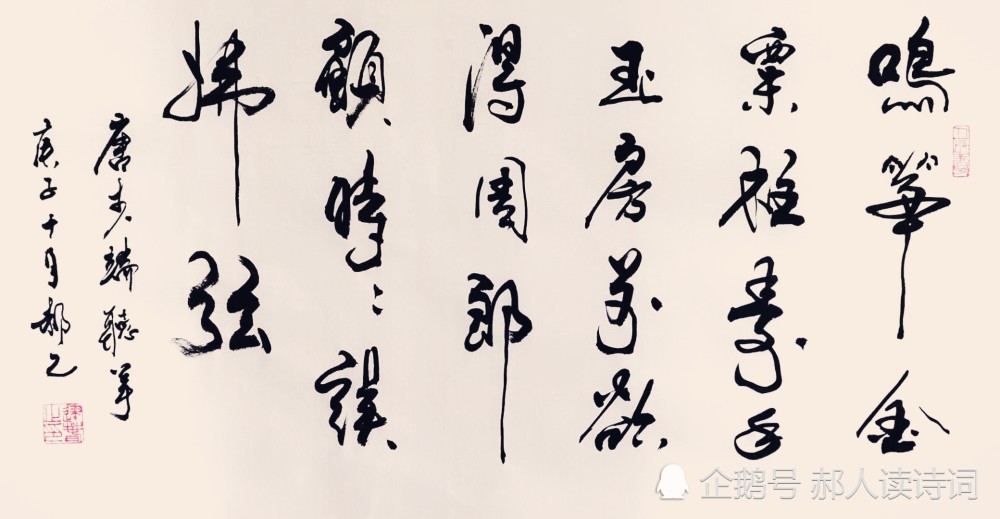 鳴箏金
粟柱素手
玉房前欲
得周郎
顧時〻誤
拂弦
唐李端聽箏
庚子十月郝
企鹅号 郝人读诗词